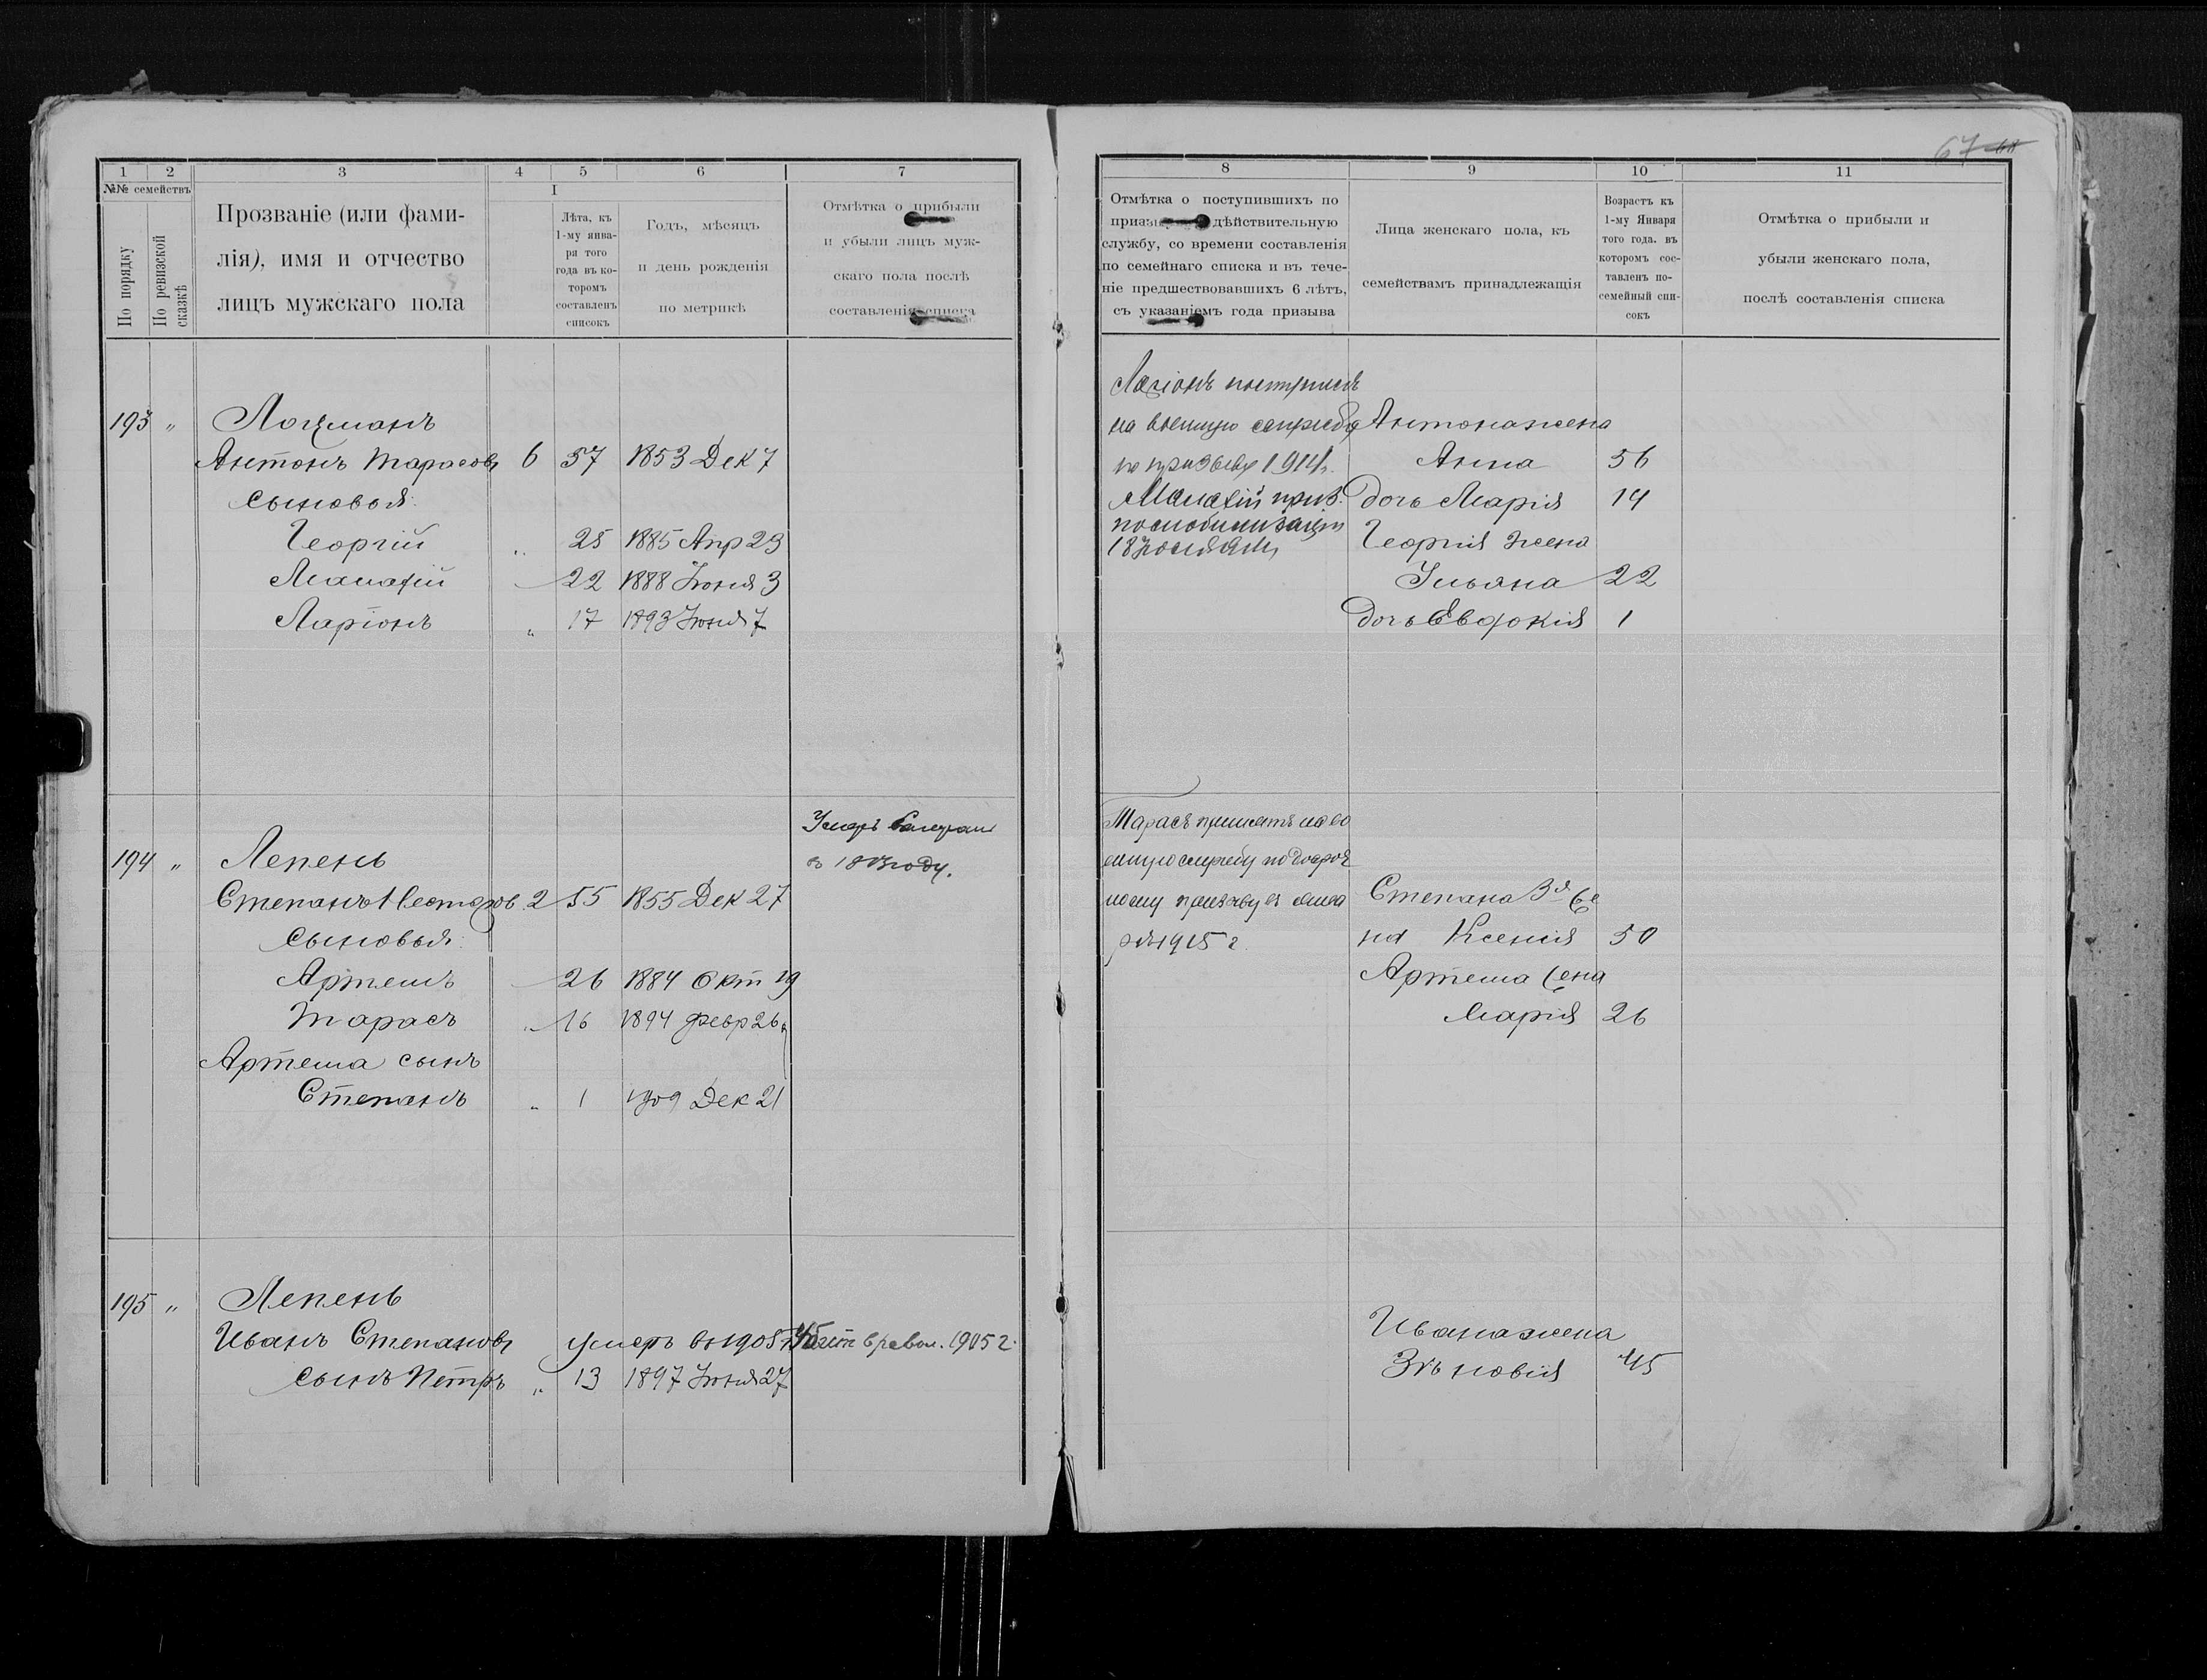 67 68
1 2 3 4 5 6 7
№№ семействъ
По порядку
По ревизской сказкѣ
Прозваніе (или фами-
лія), имя и отчество
лицъ мужскаго пола
I
Лѣта, къ
1-му янва-
ря того
года въ ко-
торомъ
составленъ
списокъ
Годъ, мѣсяцъ
и день рожденія
по метрикѣ
Отмѣтка о прибыли
и убыли лицъ муж-
скаго пола послѣ
составленія списка
193 " Лоцманъ
Антонъ Тарасовъ 6 57 1853 Дек 7
сыновья:
Георгій " 25 1885 Апр 23
Малахій 22 1888 Іюня 3
Ларіонъ " 17 1893 Іюня 7
194 " Лепень
Умеръ
в 18 году.
Степанъ 2 55 1855 Дек 27
сыновья:
Артемъ 26 1884 Окт 19
Тарасъ " 16 1894 февр 26
Артема сынъ
Степанъ " 1 1909 Дек 21
195 " Лепень
Иванъ Степановъ умеръ въ 1905 г. в 1905 г.
сынъ Петръ " 13 1897 Іюня 27
8 9 10 11
Отмѣтка о поступившихъ по
призы дѣйствительную
службу, со времени составленія
по семейнаго списка и въ тече-
ніе предшествовавшихъ 6 лѣтъ,
съ указаніемъ года призыва
Лица женскаго пола, къ
семействамъ принадлежащія
Возрастъ къ
1-му Января
того года. въ
которомъ сос-
тавленъ по-
семейный спи-
сокъ
Отмѣтка о прибыли и
убыли женскаго пола,
послѣ составленія списка
Ларіонъ поступилъ
на военную службу Антона жена
по призыву 1914 г. Анна 56
Малахій приз. дочь Марія 14
по мобилизаціи Георгія жена
18 Іюля
Ульяна 22
дочь Евдокія 1
Тарасъ принятъ на во
енную службу по досроч
ному призыву въ янва Степана
ря 1915 г. на Ксенія 50
Артема жена
Марія 26
Ивана жена
Зѣновія 45